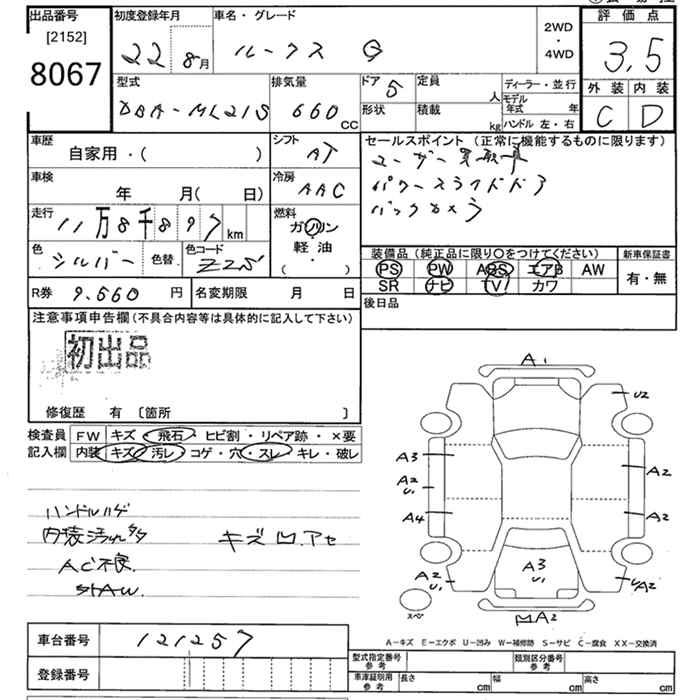 出品番号
[2152]
8067
初度登録年月
22年 8月
車名・グレード
ルークス G
2WD
・
4WD
評価点
3.5
外装 内装
C D
型式
DBA-ML21S
排気量
660 CC
ドア 5
形状
定員 人
積載 kg
ディーラー・並行
モデル年式 年
ハンドル 左・右
車歴
自家用・( )
シフト
AT
車検
年 月( 日)
冷房
AAC
走行
11万8千897km
燃料
ガソリン
軽油
・
( )
色
シルバー 色替
色コード
Z2S
R券 9.660 円
名変期限 月 日
セールスポイント(正常に機能するものに限ります)
ユーザー買取車
パワースライドドア
バックカメラ
装備品(純正品に限り〇をつけてください)
PS PW ABS エアB AW
SR ナビ TV カワ
新車保証書
有・無
後日品
注意事項申告欄(不具合内容等は具体的に記入して下さい)
初出品
修復歴 有 〔箇所 〕
検査員
記入欄
FW キズ・飛石・ヒビ割・リペア跡・×要
内装 キズ・汚レ・コゲ・穴・スレ・キレ・破レ
ハンドルハゲ
内装汚れ
キズ凹.アセ
AC不良
A1
U2
A3
A2
A2
U1
A4
A2
A3
U1
A2
U1
UA2
スペア
A2
A-キズ E-エクボ U-凹み W-補修跡 S-サビ C-腐食 XX-交換済
車台番号 121257
登録番号
型式指定番号
参考
類別区分番号
参考
車庫証明用
参考
長さ cm
幅 cm
高さ cm